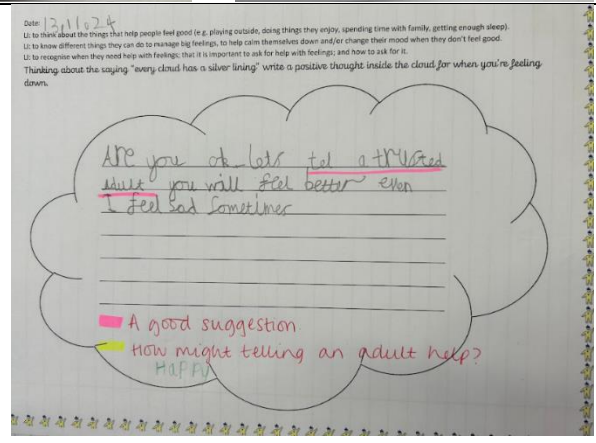 Date: 13.11.24
LI: to think about the things that help people feel good (e.g. playing outside, doing things they enjoy, spending time with family, getting enough sleep).
LI: to know different things they can do to manage big feelings, to help calm themselves down and/or change their mood when they don't feel good.
LI: to recognise when they need help with feelings; that it is important to ask for help with feelings; and how to ask for it.
Thinking about the saying "every cloud has a silver lining" write a positive thought inside the cloud for when you're feeling
down.
Are you ok lets tel a trusted
adult you will feel better even
I feel sad sometimes
A good suggestion.
How might telling an adult help?
HAPPY